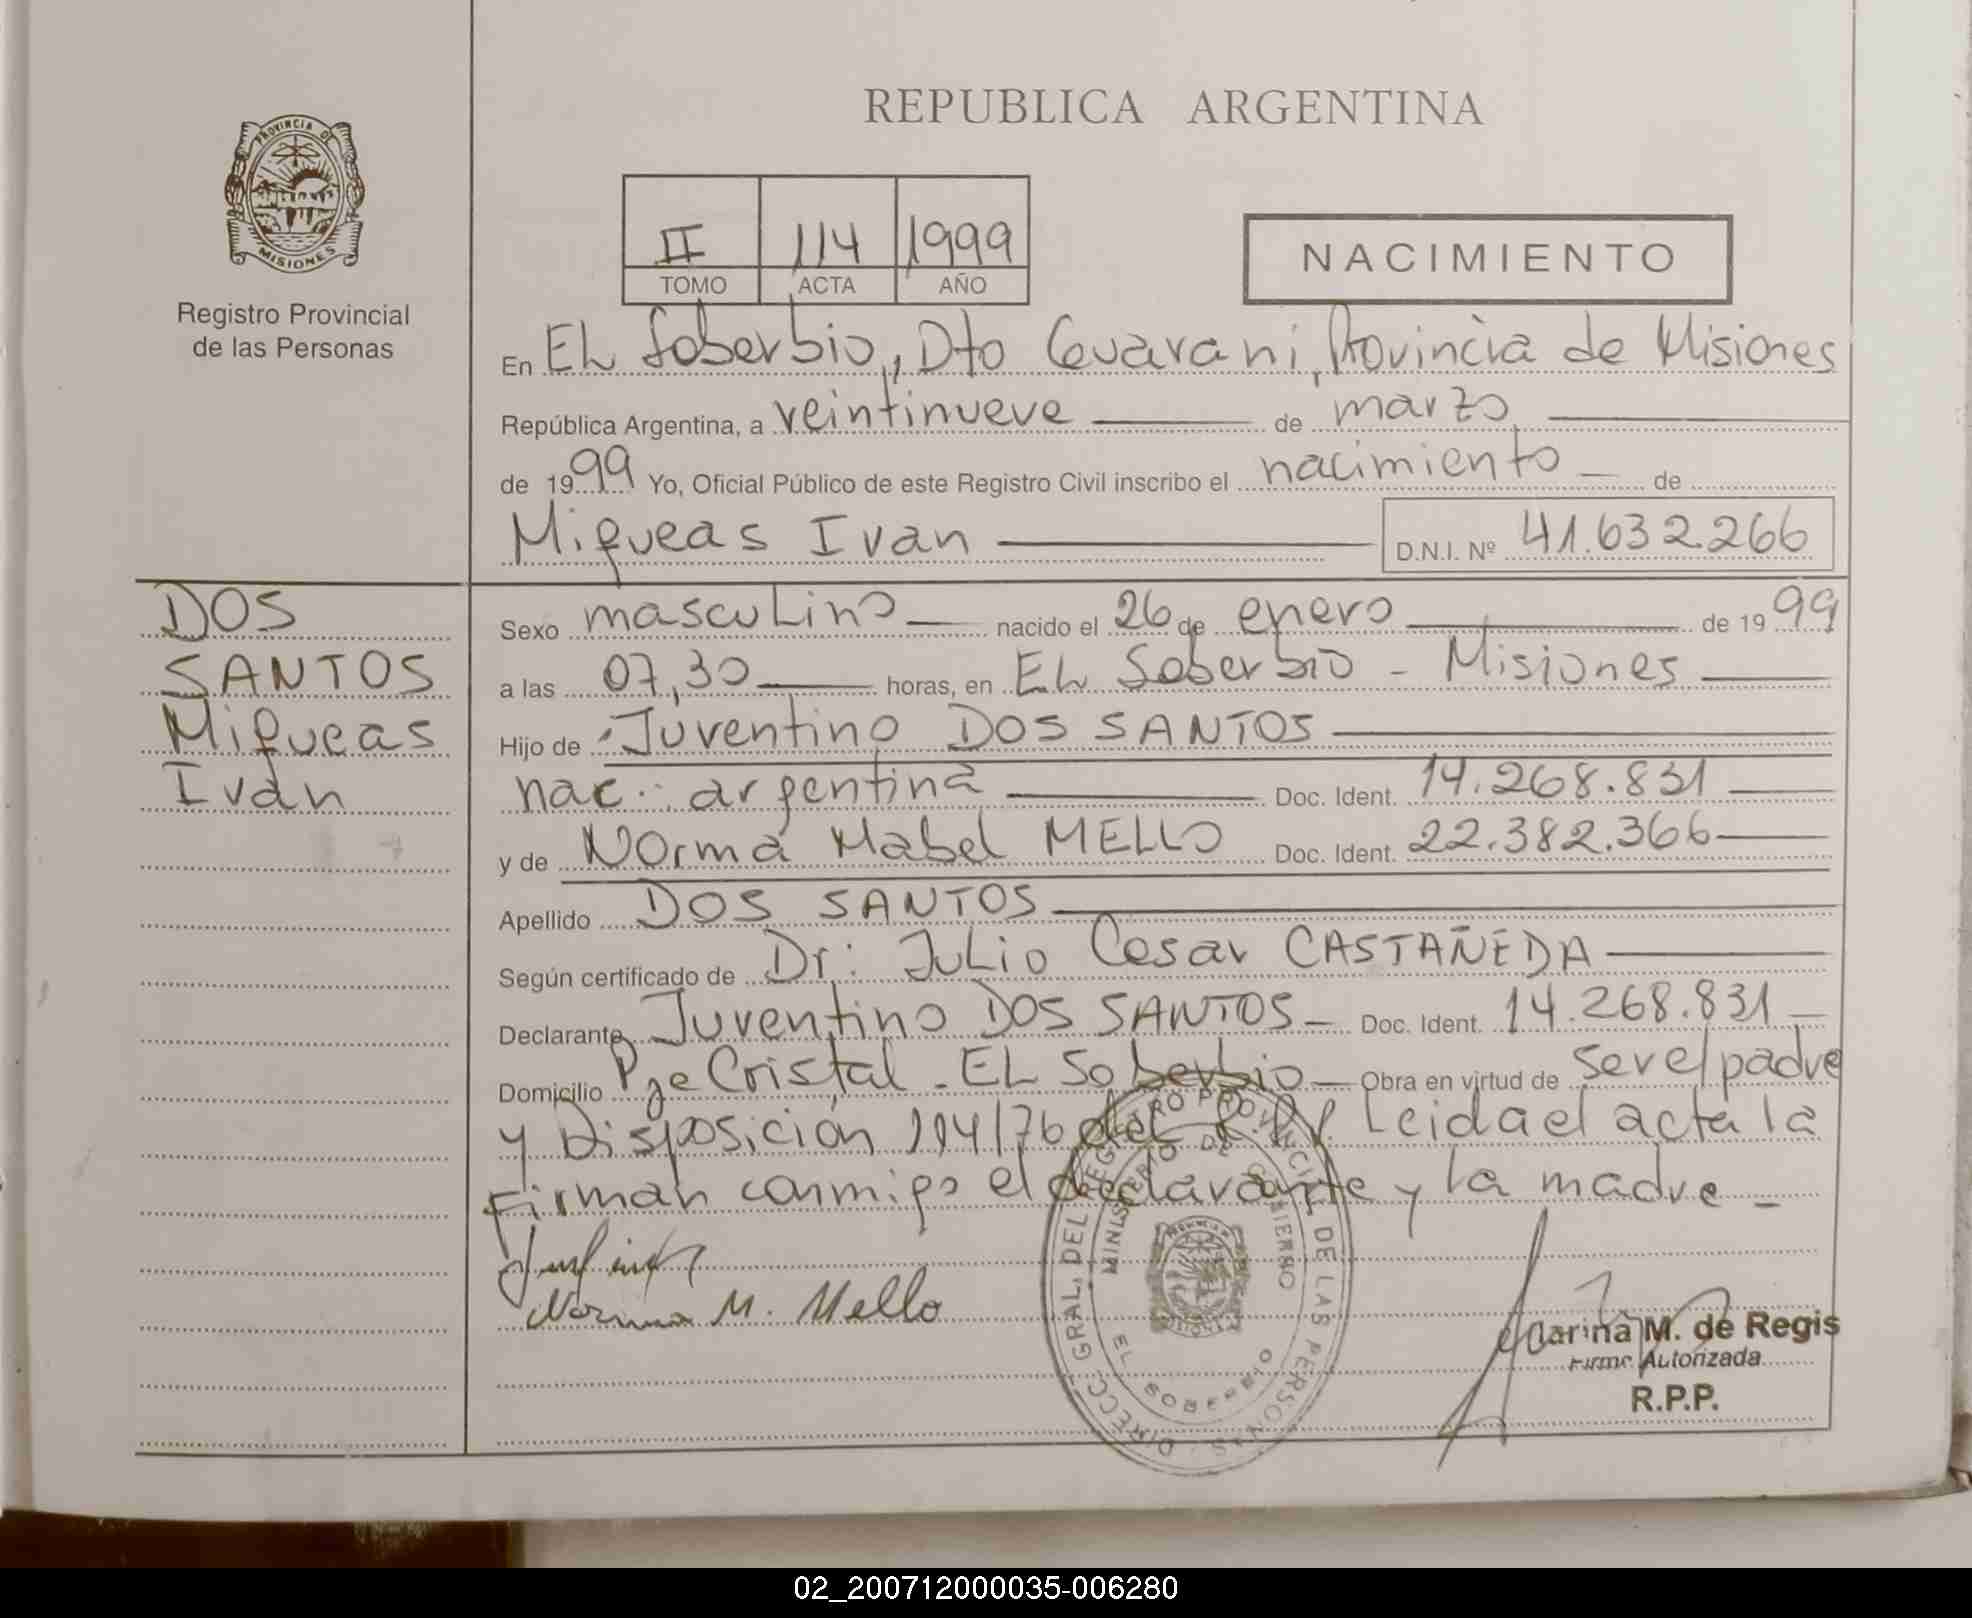 REPUBLICA ARGENTINA
PROVINCIA DE
MISIONES
Registro Provincial
de las Personas
II 114 1999
TOMO ACTA AÑO
NACIMIENTO
En EL Soberbio, Dto Guarani, Provincia de Misiones
República Argentina, a veintinueve de marzo
de 1999 Yo, Oficial Público de este Registro Civil inscribo el nacimiento de
Miqueas Ivan D.N.I. Nº 41.632.266
DOS
SANTOS
Miqueas
Ivan
Sexo masculino nacido el 26 de enero de 1999
a las 07,30 horas, en EL Soberbio - Misiones
Hijo de Juventino DOS SANTOS
nac.: argentina Doc. Ident. 14.268.831
y de Norma Mabel MELLO Doc. Ident. 22.382.366
Apellido DOS SANTOS
Según certificado de Dr: Julio Cesar CASTAÑEDA
Declarante Juventino DOS SANTOS Doc. Ident. 14.268.831
Domicilio Pje Cristal - EL Soberbio Obra en virtud de ser el padre
y Disposición 114/76 del R.P.P. Leida el acta la
Firman conmigo el declarante y la madre -
Norma M. Mello
DIRECC. GRAL. DEL REGISTRO PROVINCIAL DE LAS PERSONAS
MINISTERIO DE GOBIERNO
EL SOBERBIO
M. de Regis
Firma Autorizada
R.P.P.
02_200712000035-006280